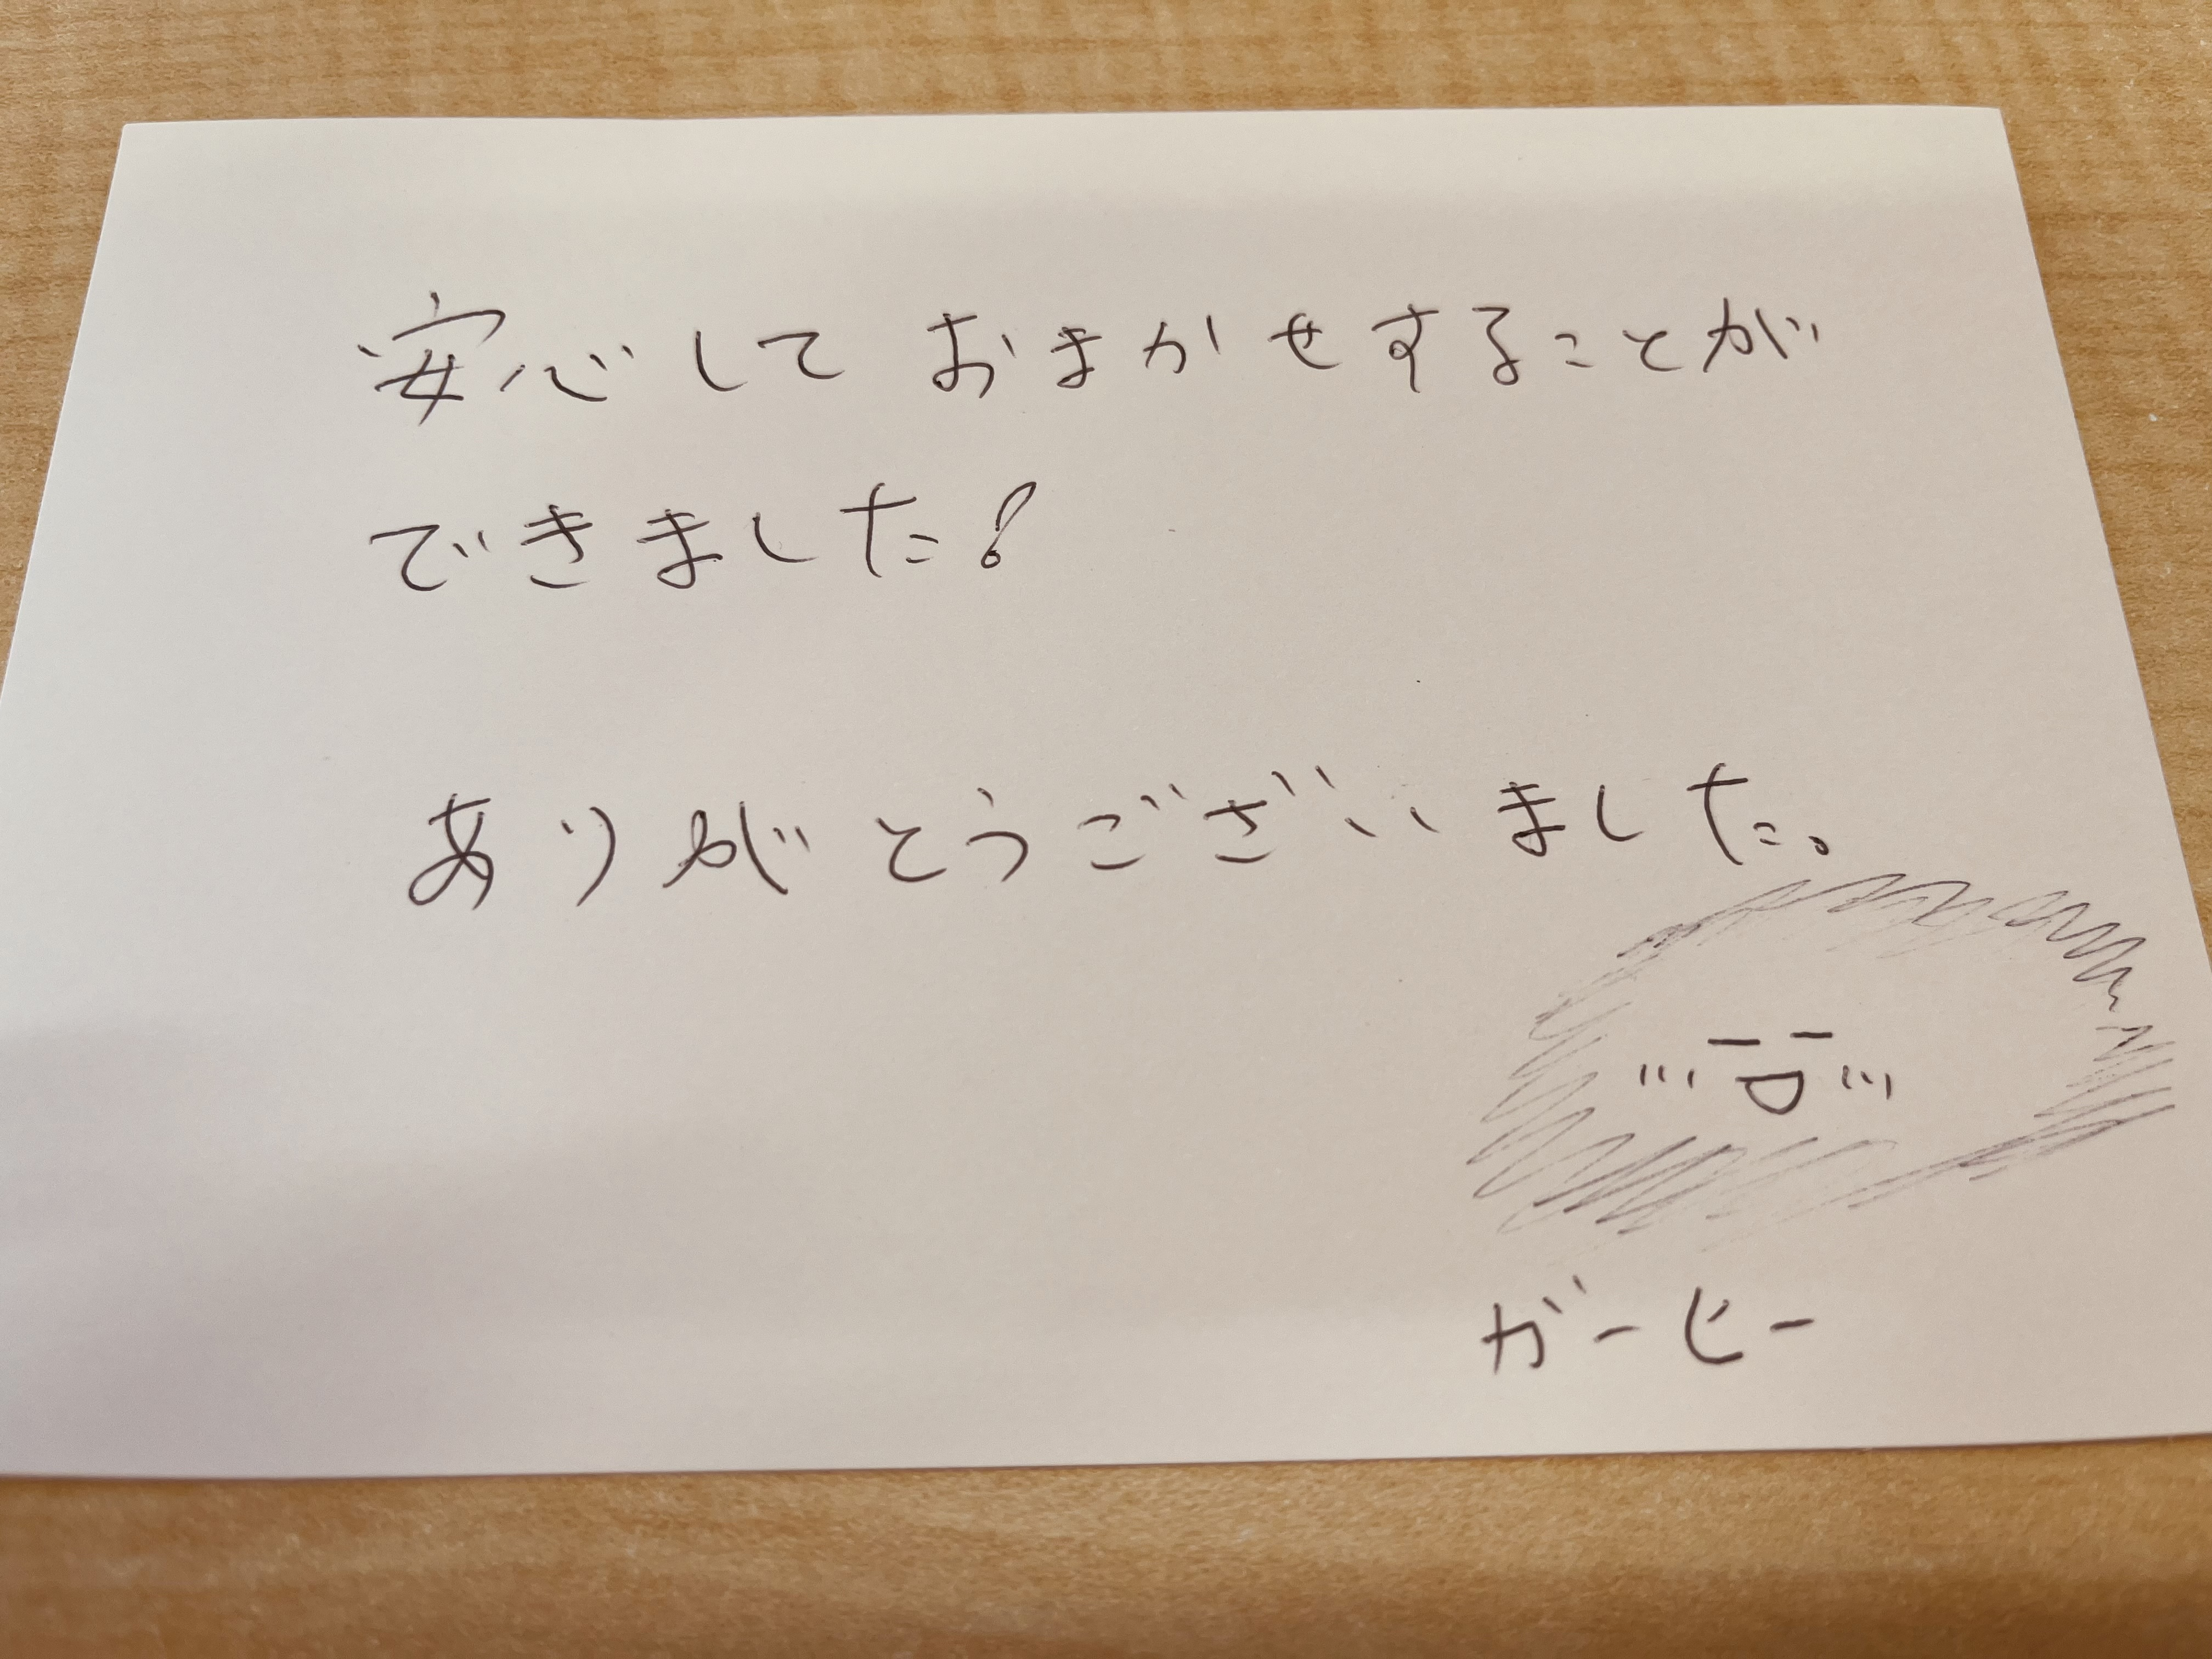 安心しておまかせすることが
できました!
ありがとうございました。
ガーヒー